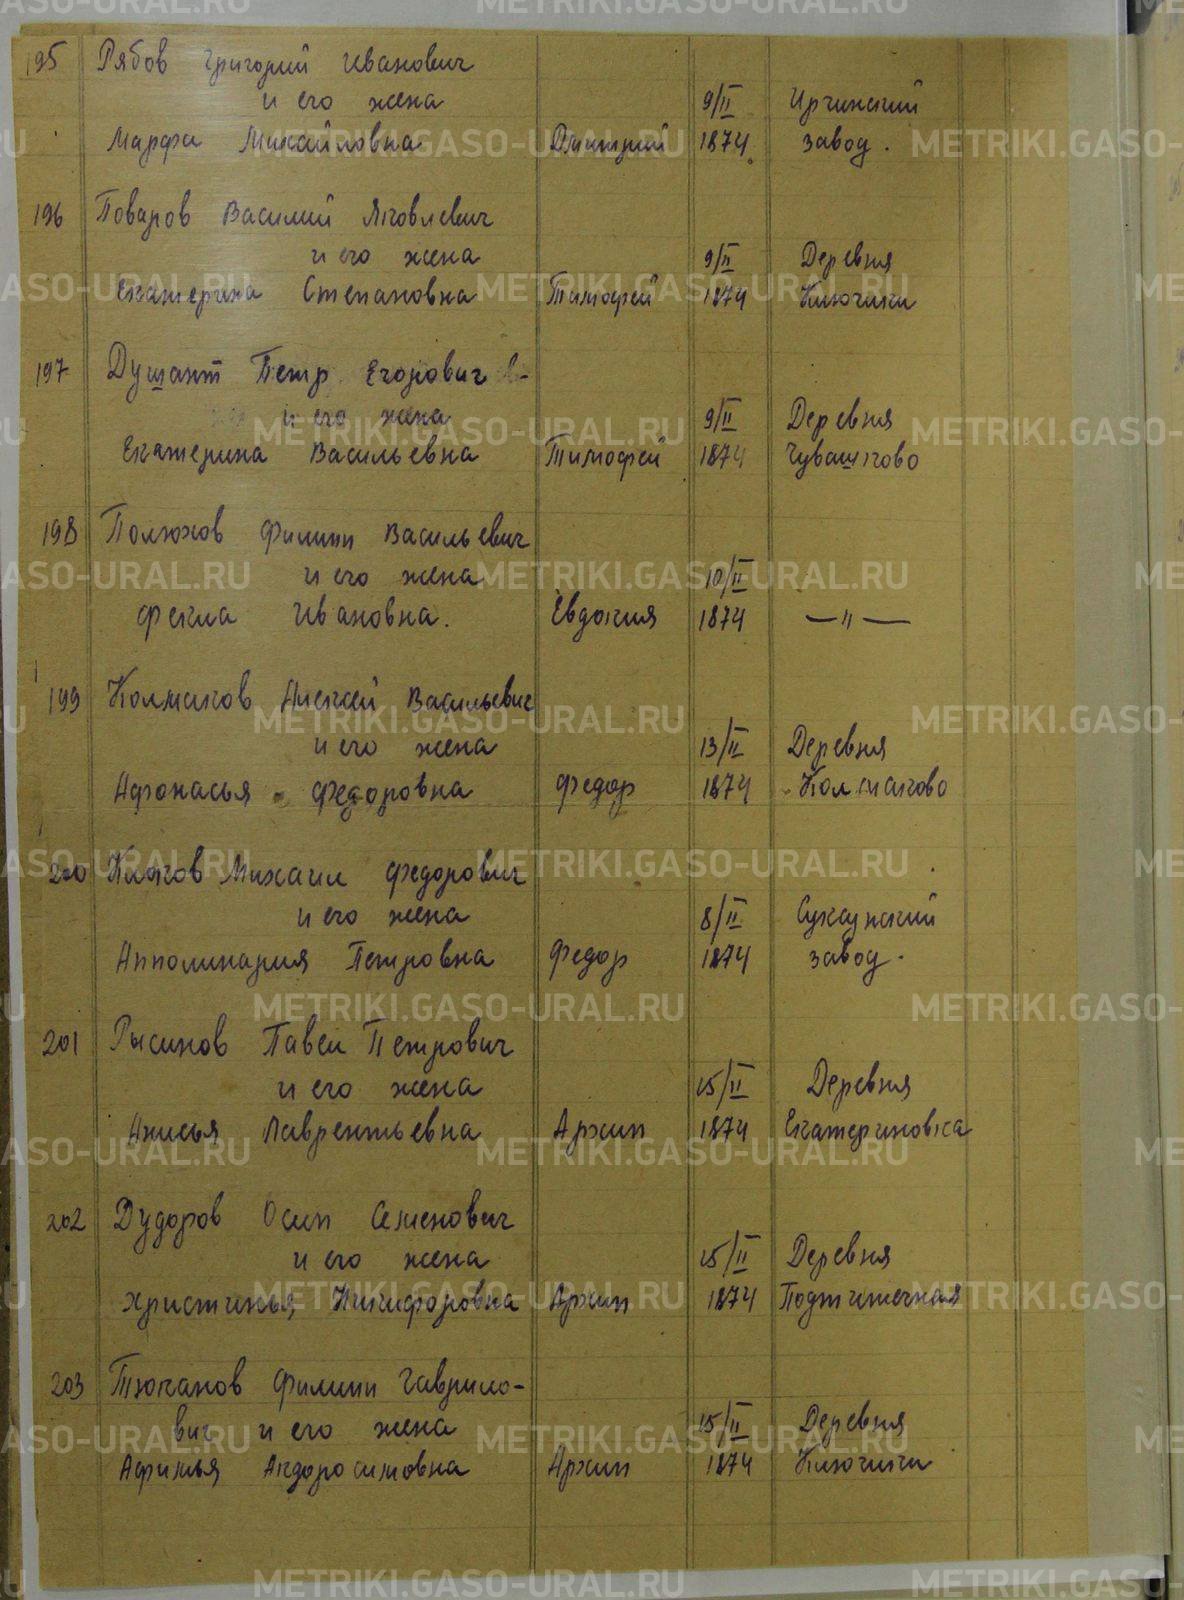 195 Рябов Григорий Иванович
и его жена 9/II Иргинский
Марфа Михайловна Дмитрий 1874 завод.
196 Поваров Василий Яковлевич
и его жена 9/II Деревня
Екатерина Степановна Тимофей 1874 Ключики
197 Душант Петр Егорович
и его жена 9/II Деревня
Екатерина Васильевна Тимофей 1874 Чувашково
198 Полюхов Филипп Васильевич
и его жена 10/II
Фекла Ивановна. Евдокия 1874 —〃—
199 Колмаков Алексей Васильевич
и его жена 13/II Деревня
Афонасья Федоровна Федор 1874 Колмаково
200 Михаил Федорович
и его жена 8/II Суксунский
Апполинария Петровна Федор 1874 завод.
201 Русинов Павел Петрович
и его жена 15/II Деревня
Анисья Лаврентьевна Архип 1874 Екатериновка
202 Дудоров Осип Семенович
и его жена 15/II Деревня
Христинья Никифоровна Архип 1874
203 Тюканов Филипп Гаврило-
вич и его жена 15/II Деревня
Афимья Андоросимовна Архип 1874 Ключики
METRIKI.GASO-URAL.RU